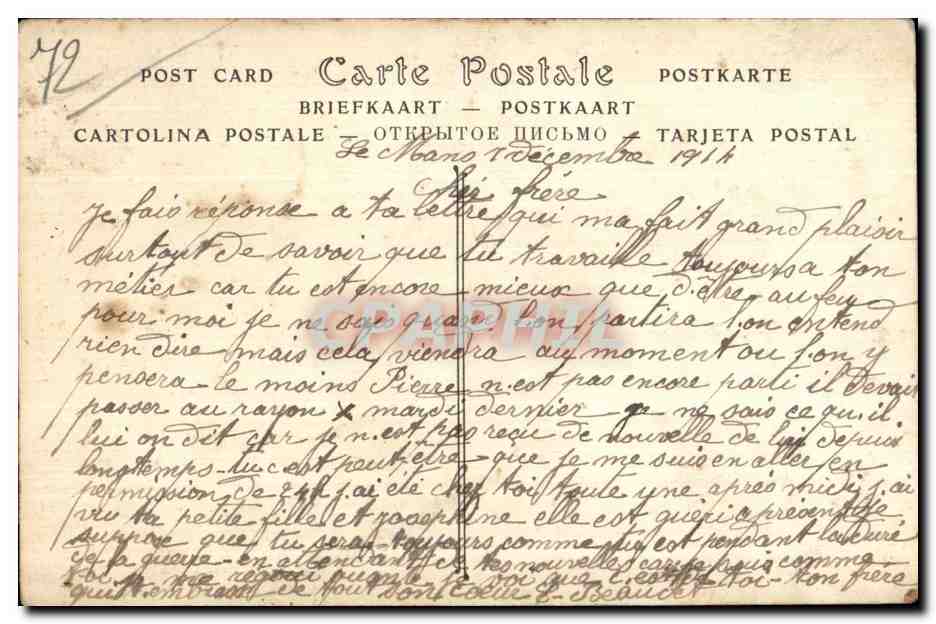 72
POST CARD Carte Postale POSTKARTE
BRIEFKAART — POSTKAART
CARTOLINA POSTALE — ОТКРЫТОЕ ПИСЬМО — TARJETA POSTAL
Le Mans 7 décembre 1914
Cher frère
Je fais réponse a ta lettre qui ma fait grand plaisir
surtout de savoir que tu travaille toujours a ton
métier car tu est encore mieux que d'être au feu
pour moi je ne sais quand l'on partira l'on entend
rien dire mais cela viendra au moment ou l'on y
pensera le moins Pierre n.est pas encore parti il devait
passer au rayon x mardi dernier je ne sais ce qu.il
lui on dit car je n.est pas reçu de nouvelle de lui depuis
longtemps - tu c.est peut être que je me suis en aller en
permission de 24h j.ai été chez toi toute une après midi j.ai
vu ta petite fille et Joosephine elle est guéri a présent je
suppose que tu seras toujours comme tu est pendant la duré
de la guerre - en attendant de tes nouvelles car je suis comme
toi je me rejoui quand je voi que c.est de toi - ton frère
qui t.embrasse de tout son coeur L. Beaudet
CPAPHIL